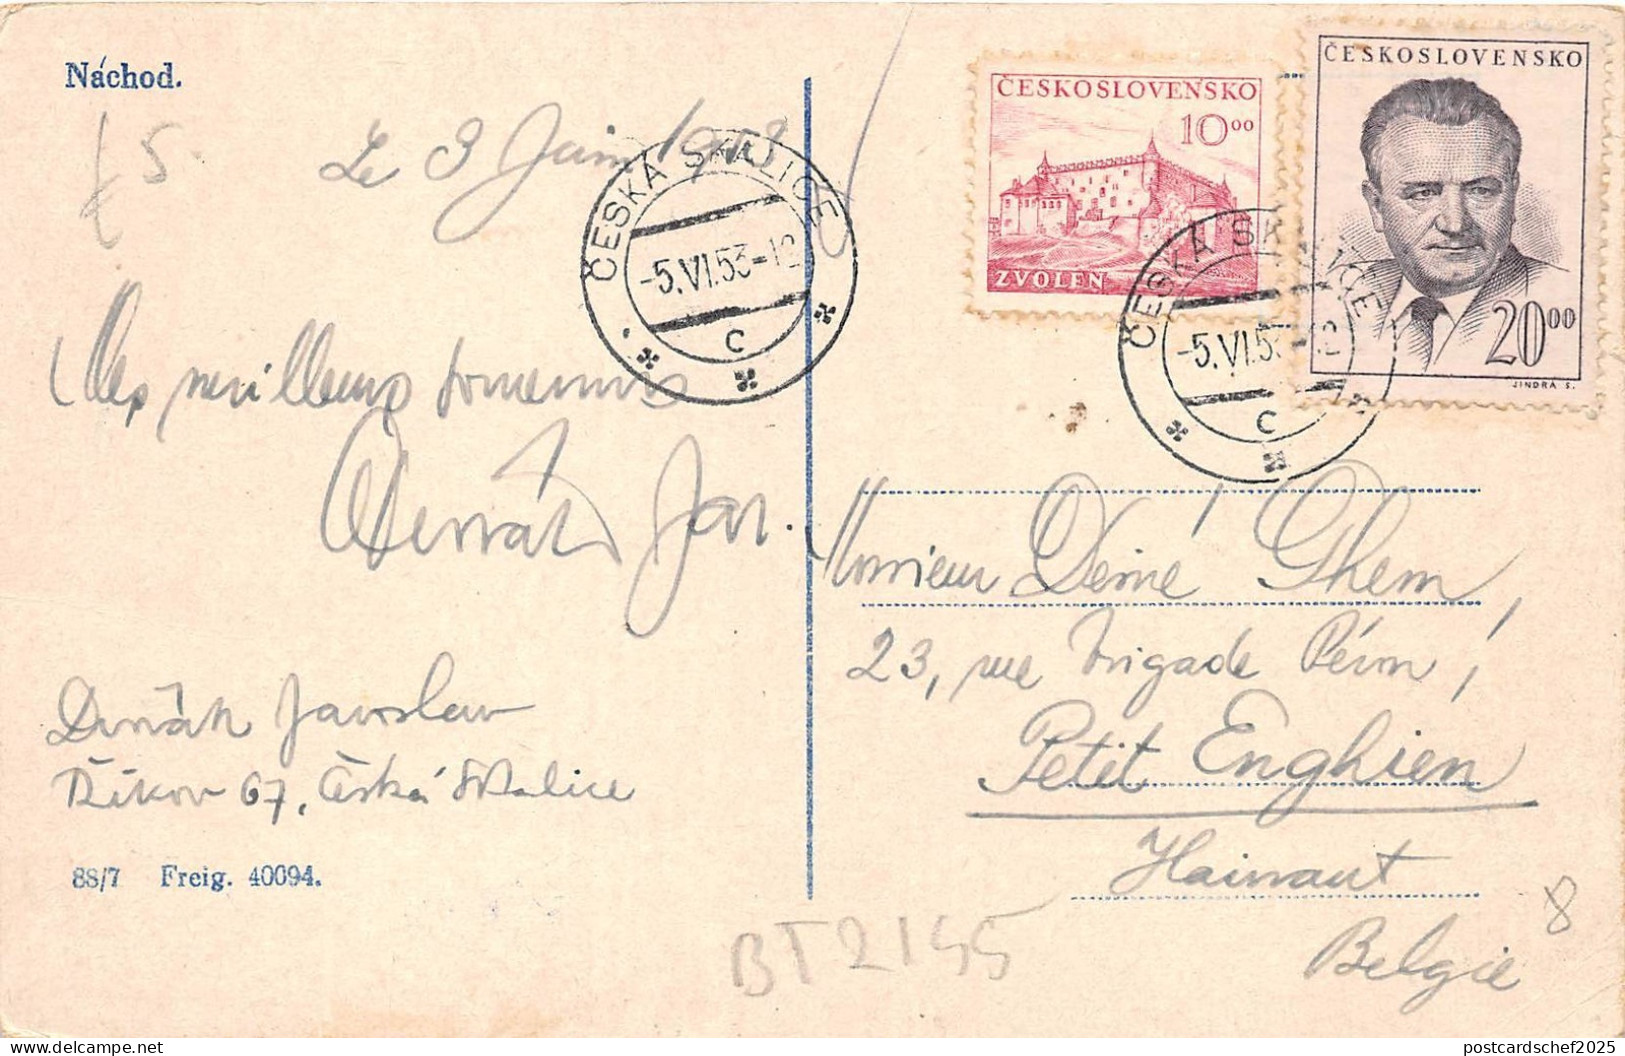 Náchod.
£ 5.
Le 3 Juin 1953
Mes meilleurs souvenirs
Dvořák Jar.
Dvořák Jaroslav
Říkov 67, Česká Skalice
88/7 Freig. 40094.
ČESKÁ SKALICE
-5.VI.53-12
C
ČESKOSLOVENSKO
10⁰⁰
ZVOLEN
ČESKOSLOVENSKO
20⁰⁰
JINDRA S.
ČESKÁ SKALICE
-5.VI.53-12
C
Monsieur Désiré Ghem,
23, rue Brigade Péron,
Petit Enghien
Hainaut
Belgie
8
BT2155
postcardschef2025